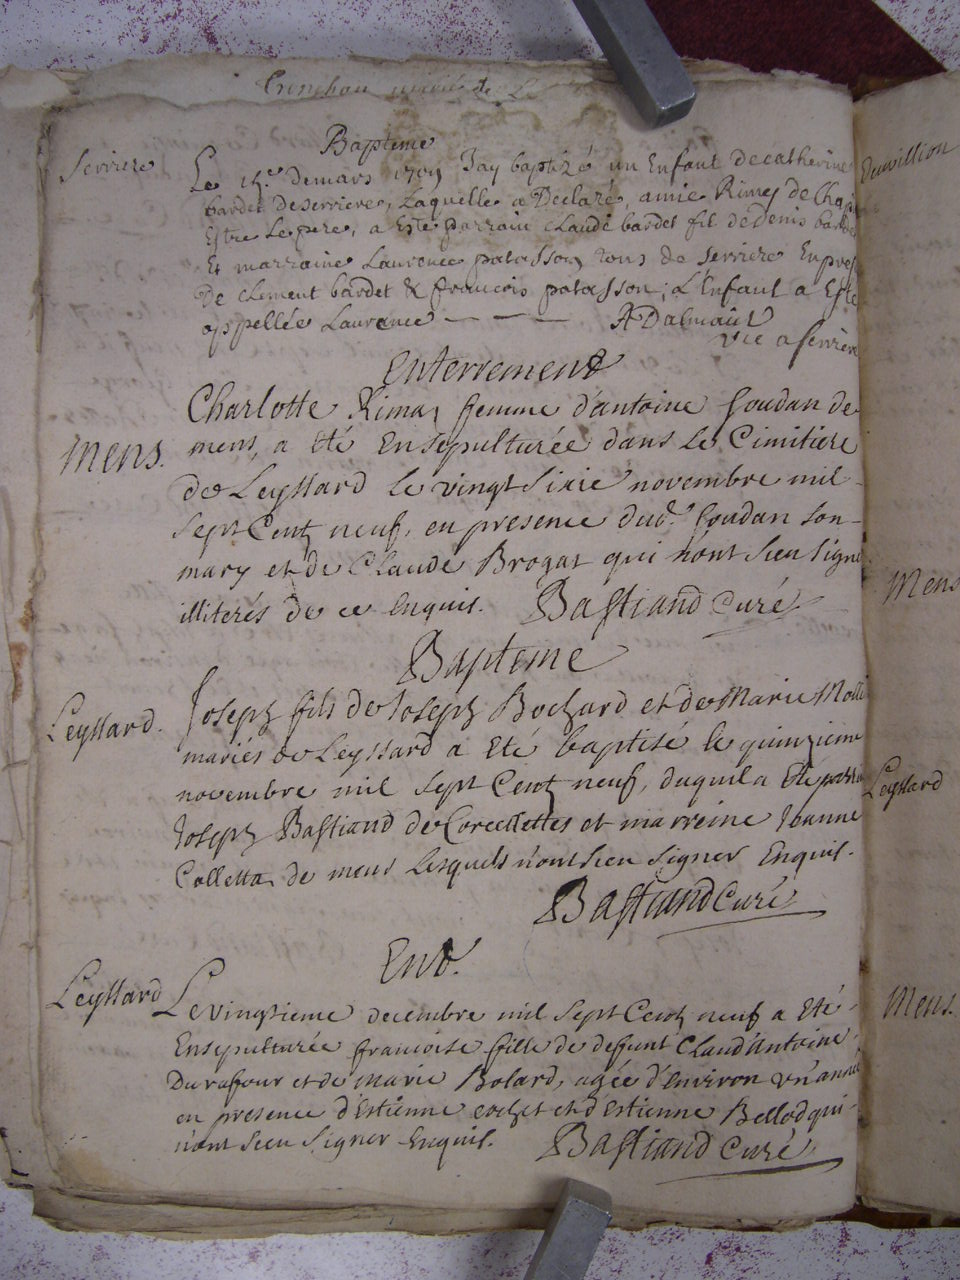 Serriere
Bapteme
Le 15.e demars 1709 Jay baptizé un Enfant decatherine
bardet deserriere, Laquelle a Declaré, amie Rimey de
Estre Le pere, a Este parrain Claude bardet fil dedenis
Et marraine Laurence patasson, tous de serriere
De Clement bardet & francois patasson; L'Enfant a Esté
appellée Laurence — — — ADalmais
Vic a serriere
Enterrement
Charlotte Rimaz femme d'antoine Goudan de
Mens.
mens, a été Ensepulturée dans Le Cimitiere
de Leyssard le vingt sixie novembre mil
sept Cent neuf, en presence dud.t Goudan son
mary et de Claude Brogat qui n'ont sceu signe
illiterés de ce Enquis. Bastiand Curé
Bapteme
Leyssard.
Joseph fils de Joseph Bochard et de Marie
mariés de Leyssard a Eté baptisé le quinzieme
novembre mil sept Cent neuf, duquil a Eté
Joseph Bastiand de Corcellettes et marreine Jeanne
Colletta de mens Lesquels n'ont sceu signer Enquis.
Bastiand Curé
Ent.
Leyssard
Le vingtieme decembre mil sept Cent neuf a Eté
Ensepulturée francoise fille de defunt Claud'Antoine
Durafour et de Marie Bolard, agée d'Environ
en presence d'Estienne cochet et d'Estienne Bellod qui
n'ont sceu signer Enquis. Bastiand Curé
Mens
Leyssard
Mens.